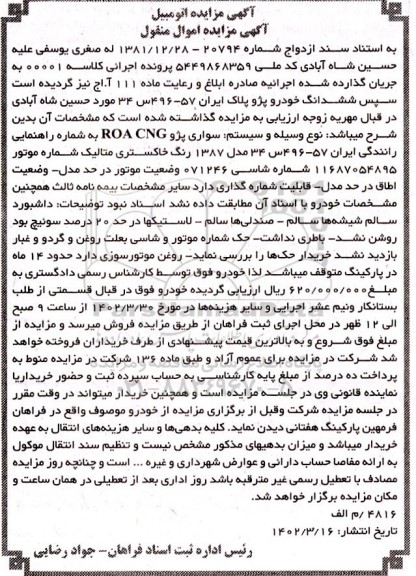 آگهی مزایده اتومبیل
آگهی مزایده اموال منقول
به استناد سند ازدواج شماره ۲۰۷۹۴ – ۱۳۸۱/۱۲/۲۸ له صغری یوسفی علیه
حسین شاه آبادی کد ملی ۵۴۴۹۸۶۸۳۵۹ پرونده اجرائی کلاسه ۰۰۰۰۱ به
جریان گذارده شده اجرائیه صادره ابلاغ و رعایت ماده ۱۱۱ آ.اج نیز گردیده است
سپس ششدانگ خودرو پژو پلاک ایران ۵۷-۴۹۶س ۳۴ مورد حسین شاه آبادی
در قبال مهریه زوجه ارزیابی به مزایده گذاشته شده است که مشخصات آن بدین
شرح میباشد: نوع وسیله و سیستم: سواری پژو ROA CNG به شماره راهنمایی
رانندگی ایران ۵۷-۴۹۶س ۳۴ مدل ۱۳۸۷ رنگ خاکستری متالیک شماره موتور
۱۱۶۸۷۰۵۴۸۹۵ شماره شاسی ۰۷۱۲۴۶ وضعیت موتور در حد مدل- وضعیت
اطاق در حد مدل- قابلیت شماره گذاری دارد سایر مشخصات بیمه نامه ثالث همچنین
مشخصات خودرو با اسناد آن مطابقت داده نشد اسناد نبود توضیحات: داشبورد
سالم شیشه‌ها سالم – صندلی‌ها سالم – لاستیکها در حد ۲۰ درصد سوئیچ بود
روشن نشد- باطری نداشت- حک شماره موتور و شاسی بعلت روغن و گردو و غبار
بازدید نشد خریدار حک‌ها را بررسی نماید- روغن موتورسوزی دارد حدود ۱۴ ماه
در پارکینگ متوقف میباشد. لذا خودرو فوق توسط کارشناس رسمی دادگستری به
مبلغ ۶۲۰/۰۰۰/۰۰۰ ریال ارزیابی گردیده خودرو فوق در قبال قسمتی از طلب
بستانکار ونیم عشر اجرایی و سایر هزینه‌ها در مورخ ۱۴۰۲/۳/۳۰ از ساعت ۹ صبح
الی ۱۲ ظهر در محل اجرای ثبت فراهان از طریق مزایده فروش میرسد و مزایده از
مبلغ فوق شروع و به بالاترین قیمت پیشنهادی از طرف خریداران فروخته خواهد
شد شرکت در مزایده برای عموم آزاد و طبق ماده ۱۳۶ شرکت در مزایده منوط به
پرداخت ده درصد از مبلغ پایه کارشناسی به حساب سپرده ثبت و حضور خریداریا
نماینده قانونی وی در جلسه مزایده است و همچنین خریدار میتواند در وقت مقرر
در جلسه مزایده شرکت وقبل از برگزاری مزایده از خودرو موصوف واقع در فراهان
فرمهین پارکینگ هفتانی دیدن نماید. کلیه بدهی‌ها و سایر هزینه‌های انتقال به عهده
خریدار میباشد و میزان بدهیهای مذکور مشخص نیست و تنظیم سند انتقال موکول
به ارائه مفاصا حساب دارائی و عوارض شهرداری و غیره ... است و چنانچه روز مزایده
مصادف با تعطیل رسمی غیر مترقبه باشد روز اداری بعد از تعطیلی در همان ساعت و
مکان مزایده برگزار خواهد شد.
۴۸۱۶ /م الف
تاریخ انتشار: ۱۴۰۲/۳/۱۶
رئیس اداره ثبت اسناد فراهان- جواد رضایی